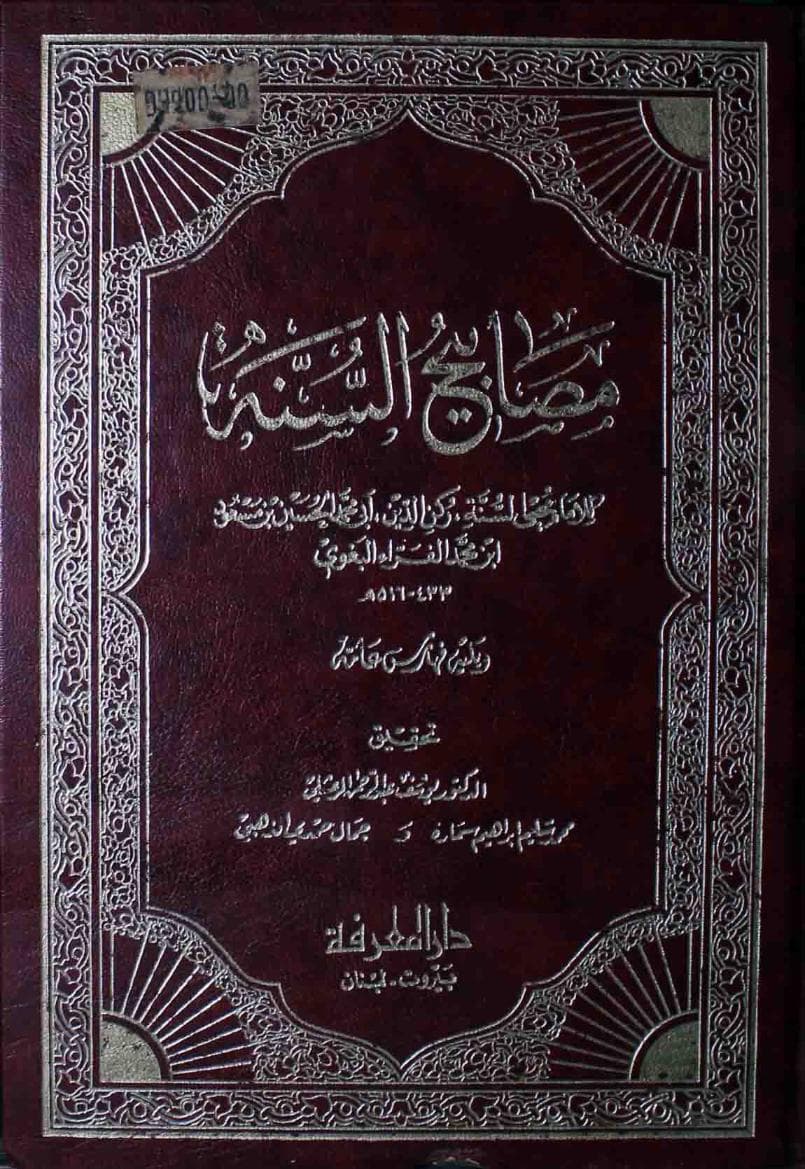 مصابيح السنه
للإمام محيي السنة، ركن الدين، أبي محمد الحسين بن مسعود
ابن محمد الفراء البغوي
٤٣٣-٥١٦هـ
ويليه فهارس عامة
تحقيق
الدكتور يوسف عبد الرحمن المرعشلي
محمد سليم إبراهيم سمارة و جمال حمدي الذهبي
دار المعرفة
بيروت - لبنان